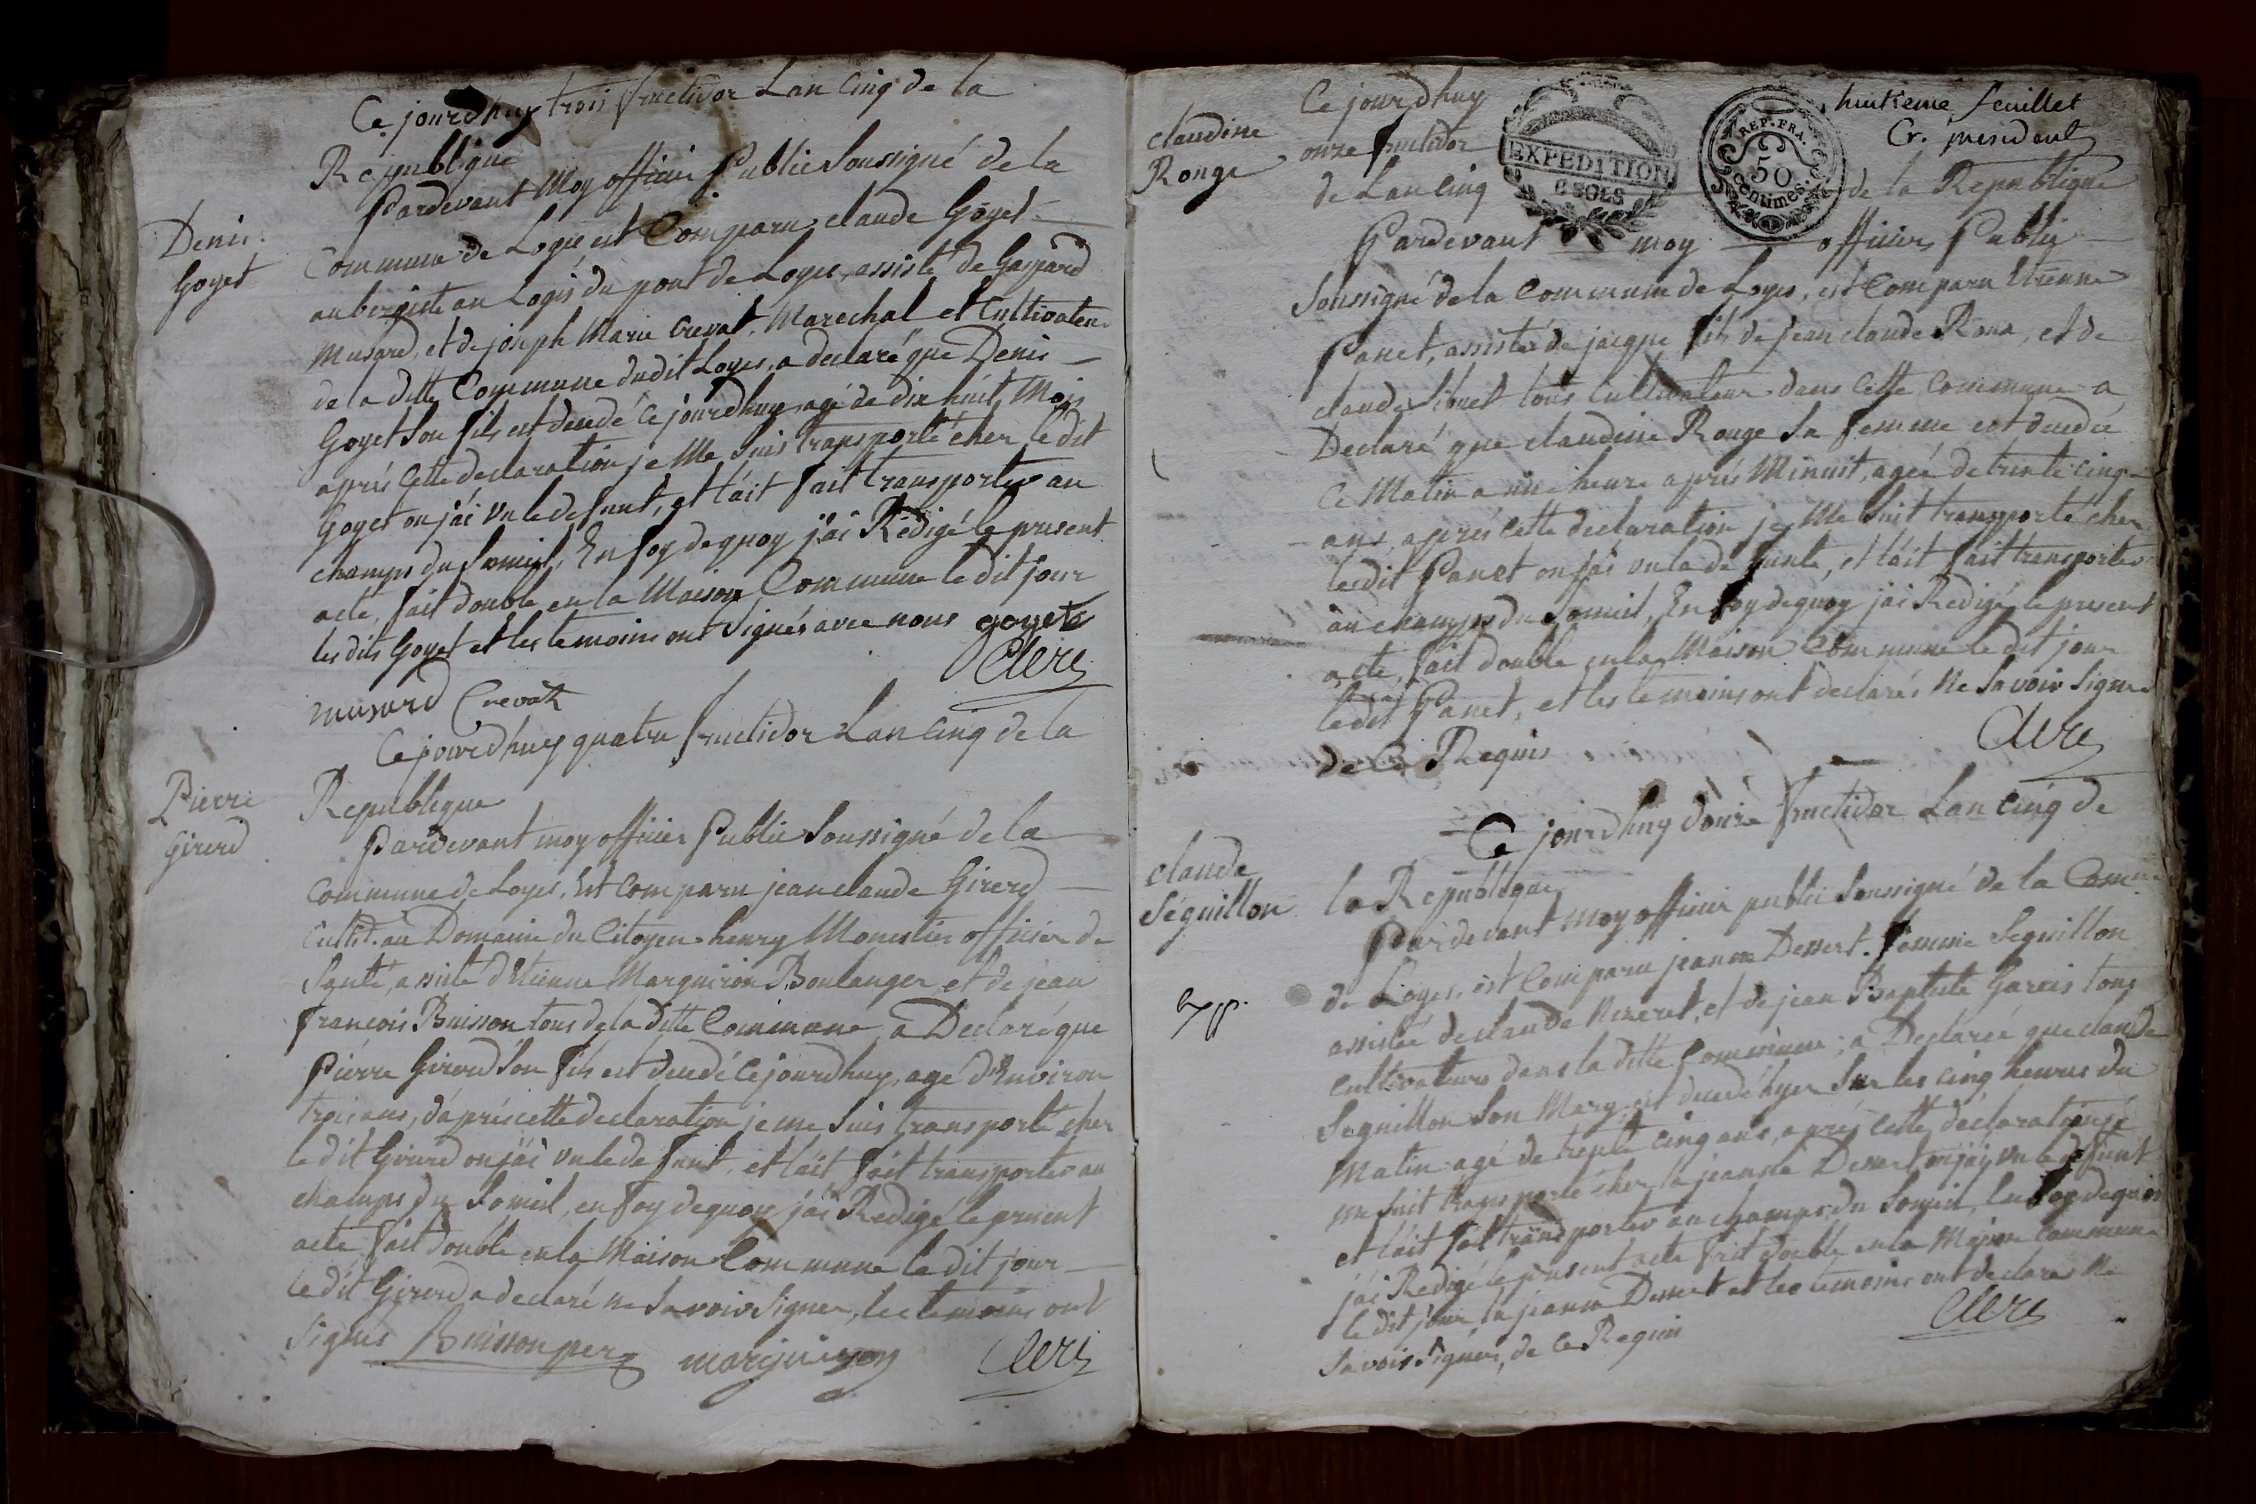 Ce jourdhuy trois fructidor Lan Cinq de la
Republique
Pardevant Moy officier Public Soussigné de la
Denis
Goyet
Commune de Loyes est Comparu claude Goyet
aubergiste au Logis du pont de Loyes, assisté de Gaspard
Musard, et de joseph Marie Crevat, Marechal et Cultivateur
de la ditte Commune dudit Loyes, a declaré que Denis
Goyet Son fils est decedé ce jourdhuy agé de dix huit Mois
aprés Cette declaration je Me Suis transporté cher le dit
Goyet ou j'ai vu le defunt, et l'ait fait transporter au
champs du Someil, En foy de quoy j'ai Rédigé le present
acte, fait double en la Maison Commune le dit jour
les dits Goyet et les temoins ont Signés avec nous goyet
Clerc
musard Crevat
Ce jourdhuy quatre fructidor Lan Cinq de la
Pierre
Girerd
Republique
Pardevant moy officier Public Soussigné de la
Commune de Loyes, Est Comparu jean claude Girerd
Cultivt. au Domaine du Citoyen henry Monestier officier de
Santé, assisté d'Etienne Marguiron Boulanger et de jean
francois Buisson tous de la ditte Commune, a Declaré que
Piérre Girerd Son fils est decedé Ce jourdhuy, agé d'Environ
trois ans, d'aprés cette declaration je me Suis transporté cher
le dit Girerd ou j'ai vu le defunt, et l'ait fait transporter au
champs du Someil, en foy de quoy j'ai Redigé le present
acte fait double en la Maison Commune le dit jour
le dit Girerd a declaré ne Savoir Signer, les temoins ont
Signés Buisson pere marguiron Clerc
huitieme feuillet
Cr. president
claudine
Rouge
Ce jourdhuy
onze fructidor
de Lan Cinq de la Republique
EXPEDITION
6 SOLS
REP. FRA.
50
centimes.
Pardevant moy officier Public
Soussigné de la Commune de Loyes, est Comparu Etienne
Panet, assisté de jacque fils de jean claude Roux, et de
claude Sibuet tous Cultivateur dans Cette Commune a
Declaré que claudine Rouge Sa femme est decedée
Ce Matin a une heure aprés Minuit, agée de trente cinq
ans, aprés cette declaration je Me Suit transporté cher
ledit Panet ou j'ai vu la defunte, et l'ait fait transporter
au champs du Someil, En foy de quoy j'ai Redigé le present
acte, fait double en la Maison Commune le dit jour
le dit Panet, et les temoins ont declarés Ne Savoir Signer
de Ce Requis
Clerc
Ce jourdhuy douze fructidor Lan Cinq de
claude
Séguillon
la Republique
Pardevant moy officier public Soussigné de la Comune
de Loyes, est Comparu jeanne Dessert femme Seguillon
assistée de claude Nezeret, et de jean Baptiste Garcis tous
Cultivateurs dans la ditte Commune, a Declarée que claude
Seguillon Son Mary est decedé hyer Sur les Cinq heures du
Matin agé de trente cinq ans, aprés cette déclaration je
me Suit transporté cher la jeanne Dessert ou j'ay vu le defunt
et l'ait fait transporter au champs du Someil, En foy de quoi
j'ai Redigé le present acte fait double en la Maison Commune
le dit jour, la jeanne Dessert et les temoins ont declarés Ne
Savoir Signer, de Ce Requis
Clerc